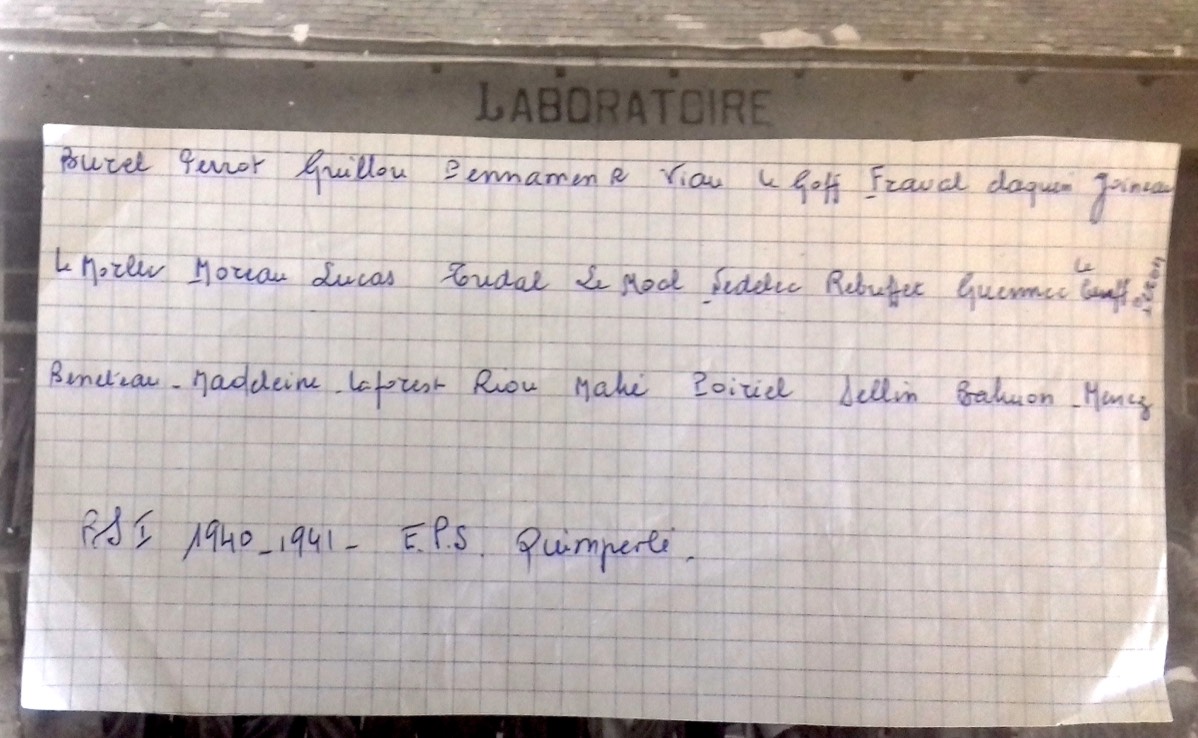 LABORATOIRE
Burel Perrot Guillou Pennamen R Viau Le Goff Fraval daquin Joineau
Le Morlec Moreau Lucas Tudal Le Moal Sedelec Rebuffet Guennec Le
Beneteau - Madeleine - Laforest Riou Mahé Poiriel Sellin Bahuon - Menez
1940-1941 - E.P.S. Quimperlé.